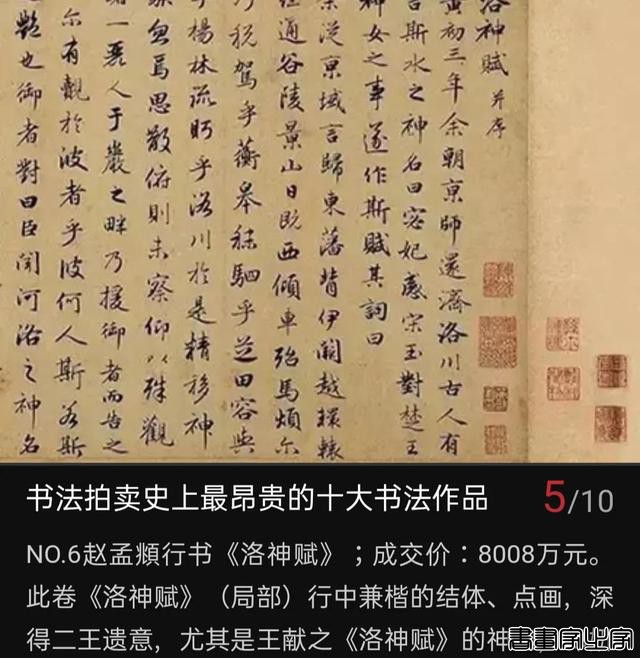 洛神賦 并序
黃初三年余朝京師還濟洛川古人有
言斯水之神名曰宓妃感宋玉對楚王
神女之事遂作斯賦其詞曰
余從京域言歸東藩背伊闕越轘轅
經通谷陵景山日既西傾車殆馬煩尔
乃稅駕乎蘅皋秣駟乎芝田容與
乎楊林流眄乎洛川於是精移神
駭忽焉思散俯則未察仰以殊觀
一麗人于巖之畔乃援御者而告之
尔有覿於彼者乎彼何人斯若斯
之艷也御者對曰臣聞河洛之神名
书法拍卖史上最昂贵的十大书法作品 5/10
NO.6赵孟頫行书《洛神赋》；成交价：8008万元。
此卷《洛神赋》（局部）行中兼楷的结体、点画，深
得二王遗意，尤其是王献之《洛神赋》的神